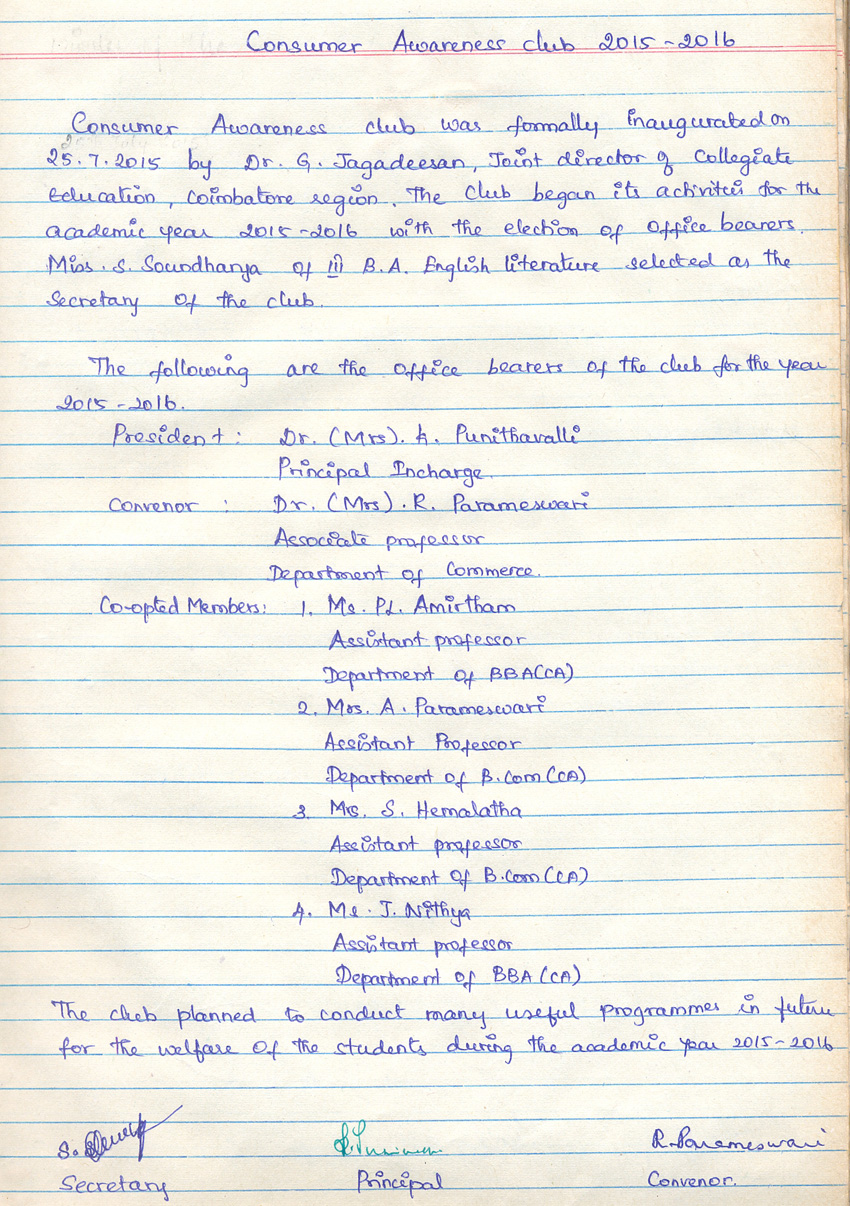 Consumer Awareness club 2015-2016
Consumer Awareness club was formally inaugurated on
25.7.2015 by Dr. G. Jagadeesan, Joint director of Collegiate
Education, Coimbatore region. The Club began its activities for the
academic year 2015-2016 with the election of Office bearers.
Miss. S. Soundhanya of III B.A. English literature selected as the
Secretary of the club.
The following are the office bearers of the club for the year
2015-2016.
President : Dr. (Mrs). A. Punithavalli
Principal Incharge.
Convenor : Dr. (Mrs). R. Parameswari
Associate professor
Department of Commerce.
Co-opted Members: 1. Ms. PL. Amirtham
Assistant professor
Department of BBA(CA)
2. Mrs. A. Parameswari
Assistant Professor
Department of B.Com(CA)
3. Mrs. S. Hemalatha
Assistant professor
Department of B.Com(CA)
4. Ms. J. Nithya
Assistant professor
Department of BBA(CA)
The club planned to conduct many useful programmes in future
for the welfare of the students during the academic year 2015-2016
S. R. Parameswari
Secretary Principal Convenor.